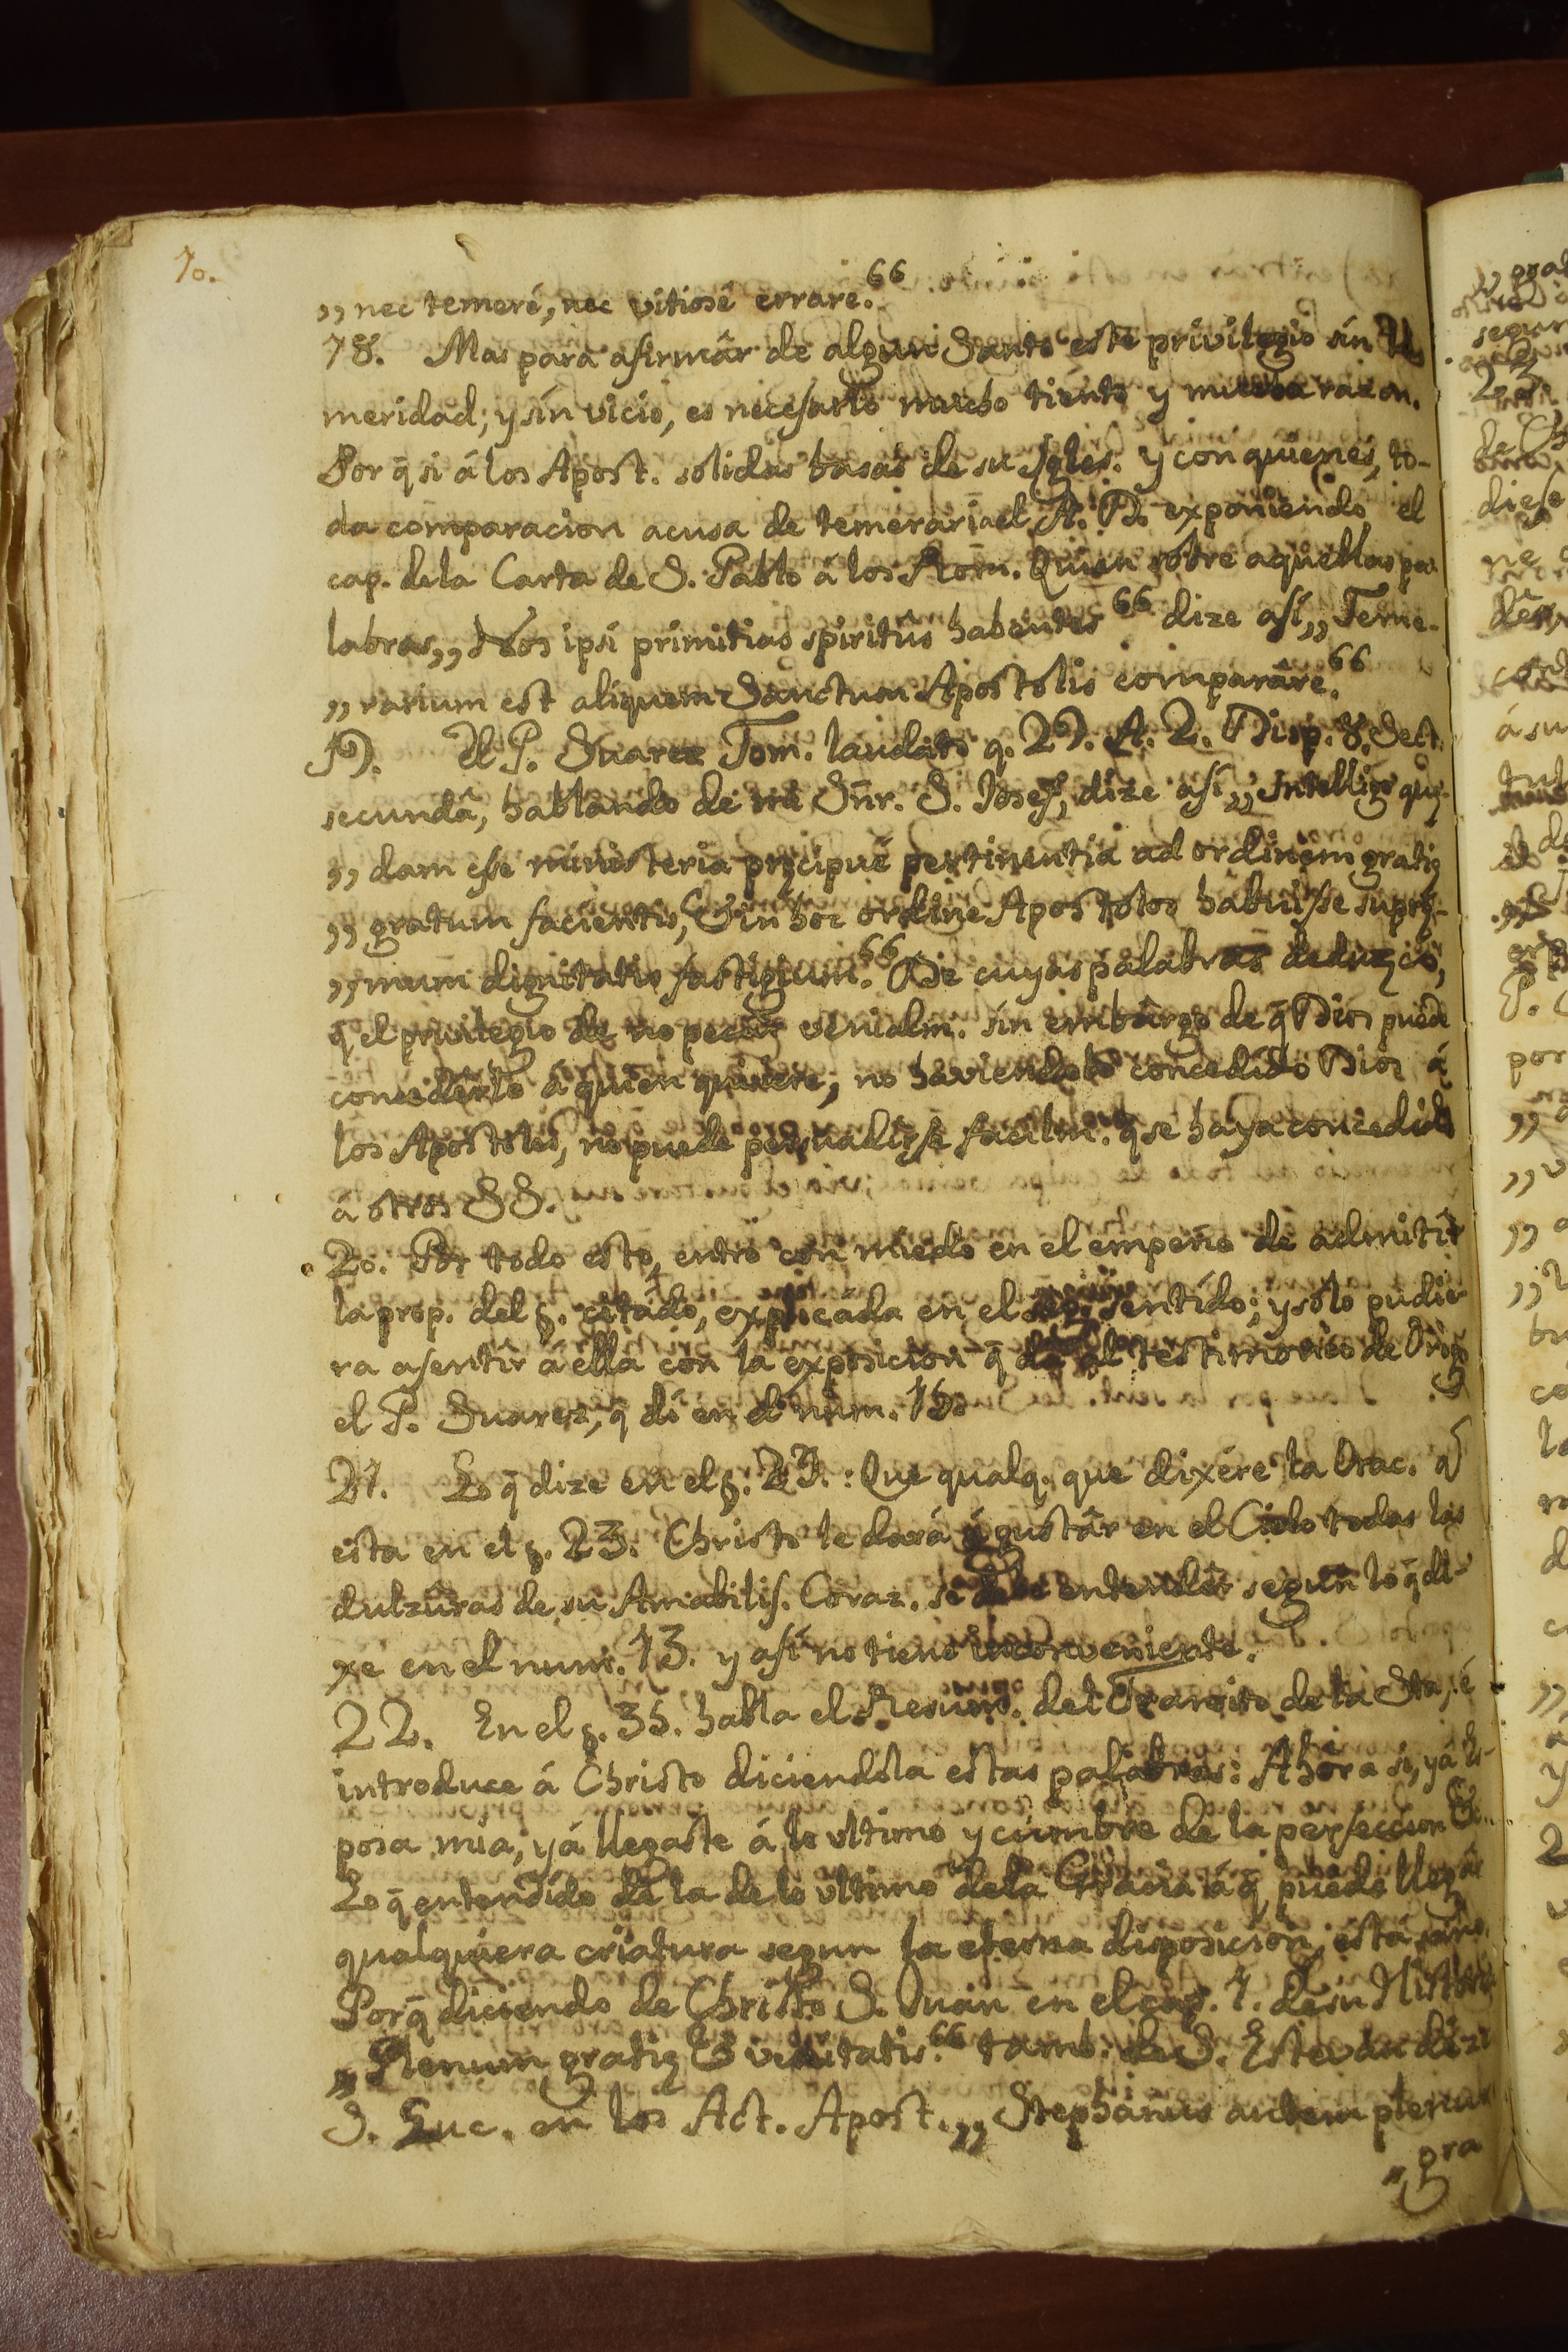 10.
„ nec temeré, nec vitiosê errare.“
18. Mas para afirmâr de algun Santo este privilegio sin te
meridad; y sin vicio, es necesario mucho tiento y mucha razon.
Porq̄ si á los Apost. solidas basas de su Igles. y con quienes, to-
da comparacion acusa de temeraria el A. D. exponiendo el
cap. dela Carta de S. Pablo á los Rom. Quien sobre aquellas pa-
labras „ Nos ipsi primitias spiritûs habentes “ dize asi „ Teme-
„ rarium est aliquem Sanctum Apostolis comparâre.“
19. El P. Suarez Tom. laudato q. 29. A. 2. Disp. 8. Sect.
secundâ, hablando de mi Sñr. S. Josef, dize asi „ Intelligo quę-
„ dam esse ministeria pręcipuê pertinentia ad ordinem gratię
„ gratum facientis, & in hoc ordine Apostolos habuisse suprę-
„ mum dignitatis fastigium.“ De cuyas palabras deduzco,
q̄ el privilegio de no pecar venialm. sin embargo de q̄ Dios puede
concederlo á quien quisiere, no haviendolo concedido Dios á
los Apostoles, no puede persuadirse facilm. q̄ se haya concedido
á otros SS.
20. Por todo esto, entro con miedo en el empeño de admitir
la prop. del §. citado, explicada en el sentido; y solo pudie-
ra asentir á ella con la exposicion q̄ da al testimonio de Orig.
el P. Suarez, q̄ dí en el num. 16.
21. Lo q̄ dize en el §. 29.: Que qualq. que dixére la Orac. q̄
esta en el §. 23. Christo le dará á gustâr en el Cielo todas las
dulzûras de su Amabilis. Coraz. se debe entender según lo q̄ di-
xe en el num. 13. y así no tiene inconveniente.
22. En el §. 35. habla el Resum. del Transito de la Sta, é
introduce á Christo diciendola estas palabras: Ahora si, yá Es-
posa mia, yá llegaste á lo ultimo y cumbre de la perfeccion &c.
Lo q̄ entendido de la de lo ultimo dela Gracia á q̄ puede llegâr
qualquiera criatura segun la eterna disposicion, está
Porq̄ diciendo de Christo S. Juan en el cap. 1. de su Histori
„ Plenum gratię & veritatis.“ tamb. de S. Estevan dize
S. Luc. en los Act. Apost. „ Stephanus autem plenus
„ gra